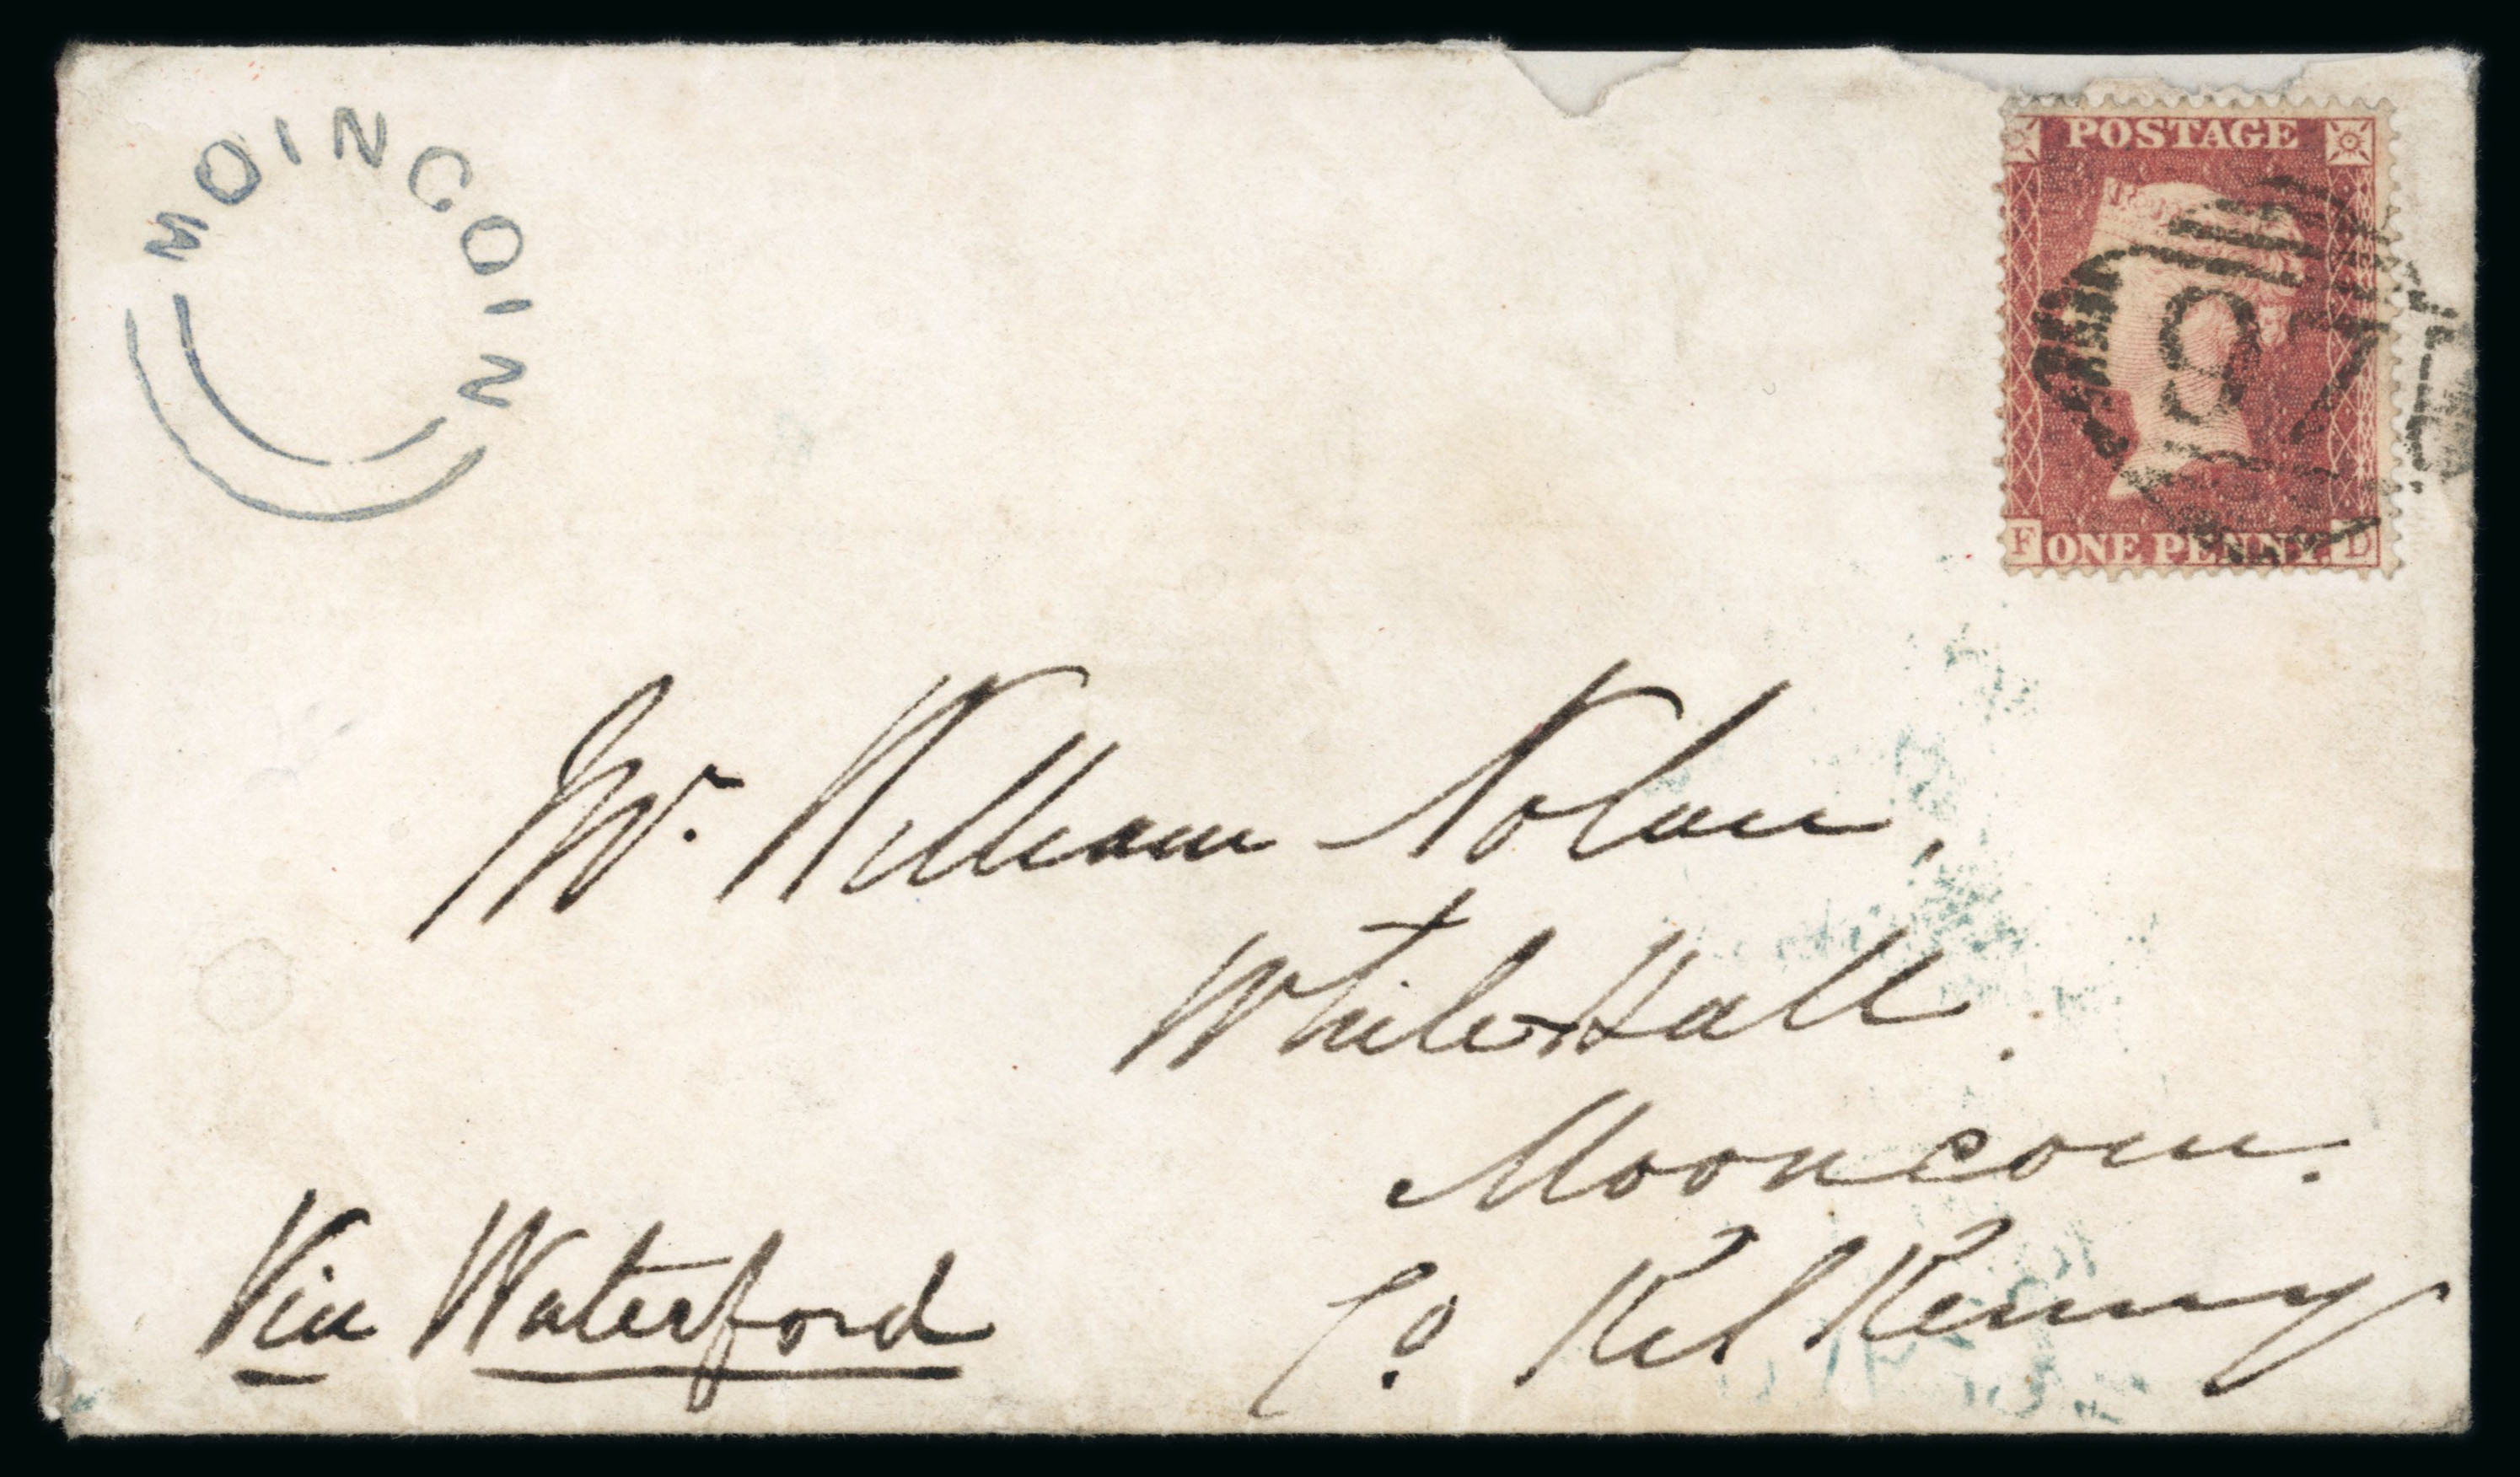 MOINCOIN
POSTAGE
8
F ONE PENNY. D
Mr. William Nolan,
White Hall.
Mooncoin.
Via Waterford
Co. Kil Kenny